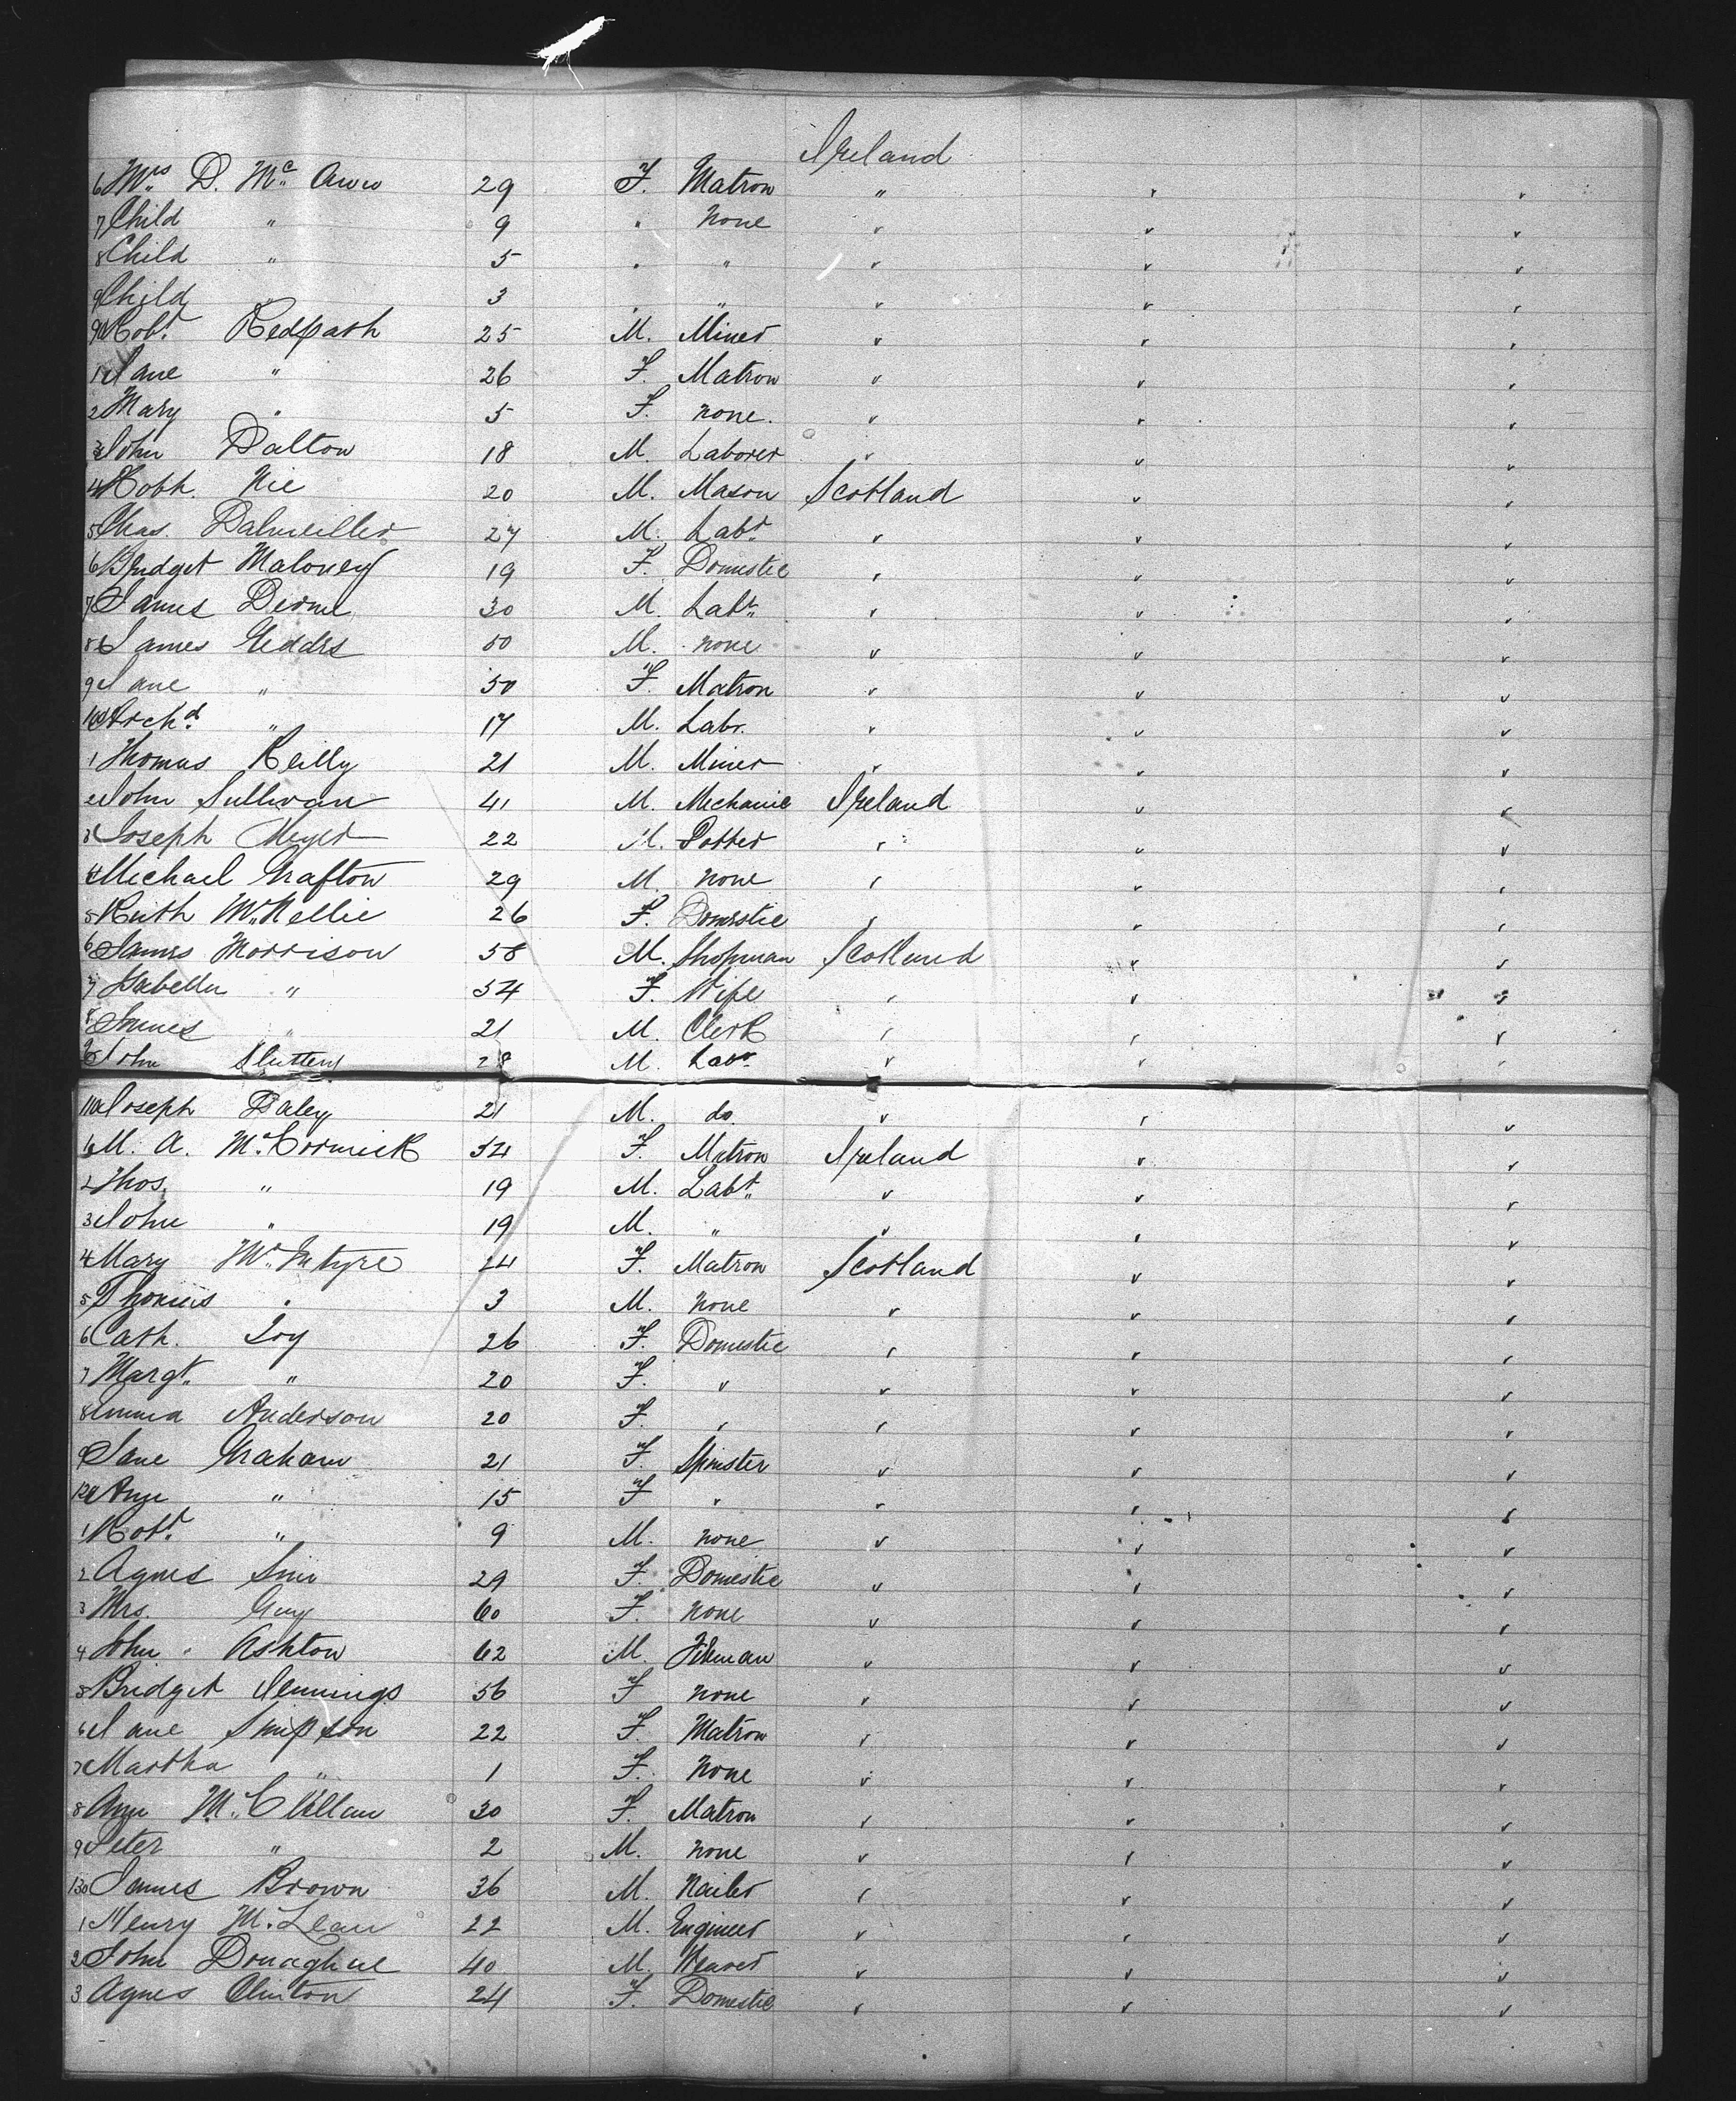 Ireland
6 Mrs D. Mc Aww 29 F. Matron "
7 Child " 9 " None "
8 Child " 5 " " "
9 Child " 3 " " "
90 Robt. Redpath 25 M. Miner "
1 Jane " 26 F. Matron "
2 Mary " 5 F. none. "
3 John Dalton 18 M. Laborer "
4 Robt. Nie 20 M. Mason Scotland
5 Chas. Dalweiller 27 M. Labr. "
6 Bridget Maloney 19 F. Domestic "
7 James Derme 30 M. Labr. "
8 James Geddes 50 M. none "
9 Jane " 50 F. Matron "
100 Archd. " 17 M. Labr. "
1 Thomas Reilly 21 M. Miner "
2 John Sullivan 41 M. Mechanic Ireland
3 Joseph Meyer 22 M. Potter "
4 Michael Grafton 29 M. none "
5 Ruth Mc. Kellie 26 F. Domestic "
6 James Morrison 58 M. Shopman Scotland
7 Isabella " 54 F. Wife "
8 James " 21 M. Clerk "
9 John 28 M. Labr. "
110 Joseph Daley 21 M. do. "
1 M. A. Mc. Cormick 34 F. Matron Ireland
2 Thos. " 19 M. Labr. "
3 John " 19 M. " "
4 Mary Mc. Intyre 24 F. Matron Scotland
5 Thomas " 3 M. none "
6 Cath. Joy 26 F. Domestic "
7 Margt. " 20 F. " "
8 Emma Anderson 20 F. " "
9 Jane Graham 21 F. Spinster "
120 Ann " 15 F " "
1 Robt. " 9 M. none "
2 Agnes Sim 29 F. Domestic "
3 Mrs. Guy 60 F. none "
4 John Ashton 62 M. "
5 Bridget Jennings 56 F none "
6 Jane Simpson 22 F. Matron "
7 Martha " 1 F. None "
8 Ann Mc. Clellan 30 F. Matron "
9 Peter " 2 M. none "
130 James Brown 36 M. Nailer "
1 Henry Mc. Lean 22 M. Engineer "
2 John Donaghue 40 M. Weaver "
3 Agnes Clinton 24 F. Domestic "